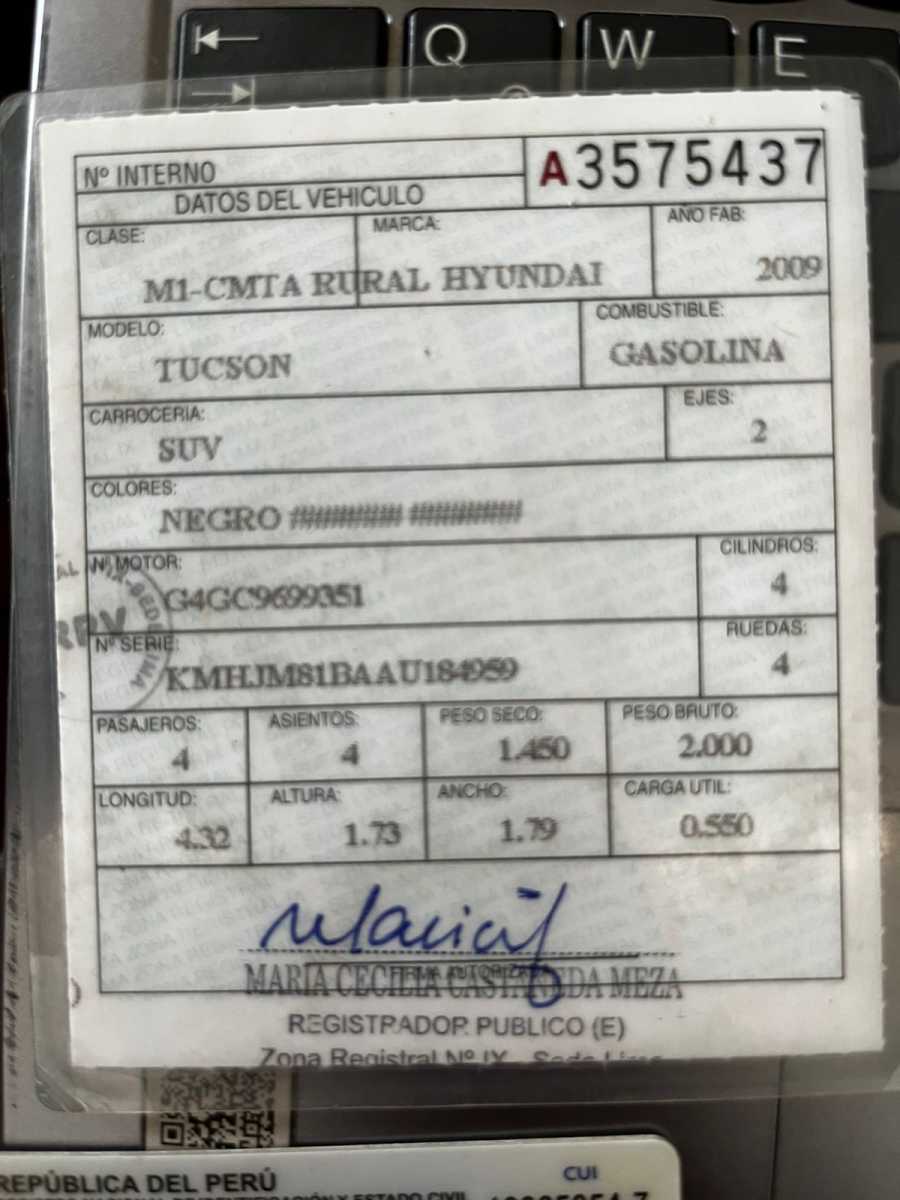 Q W E
Nº INTERNO
A3575437
DATOS DEL VEHICULO
CLASE: MARCA: AÑO FAB:
M1-CMTA RURAL HYUNDAI 2009
MODELO: COMBUSTIBLE:
TUCSON GASOLINA
CARROCERIA: EJES:
SUV 2
COLORES:
NEGRO ####### #######
Nº MOTOR: CILINDROS:
G4GC9699351 4
Nº SERIE: RUEDAS:
KMHJM81BAAU184959 4
PASAJEROS: ASIENTOS: PESO SECO: PESO BRUTO:
4 4 1.450 2.000
LONGITUD: ALTURA: ANCHO: CARGA UTIL:
4.32 1.73 1.79 0.550
MARIA CECILIA CASTAÑEDA MEZA
REGISTRADOR PUBLICO (E)
Zona Registral Nº IX - Sede Lima
REPÚBLICA DEL PERÚ
CUI